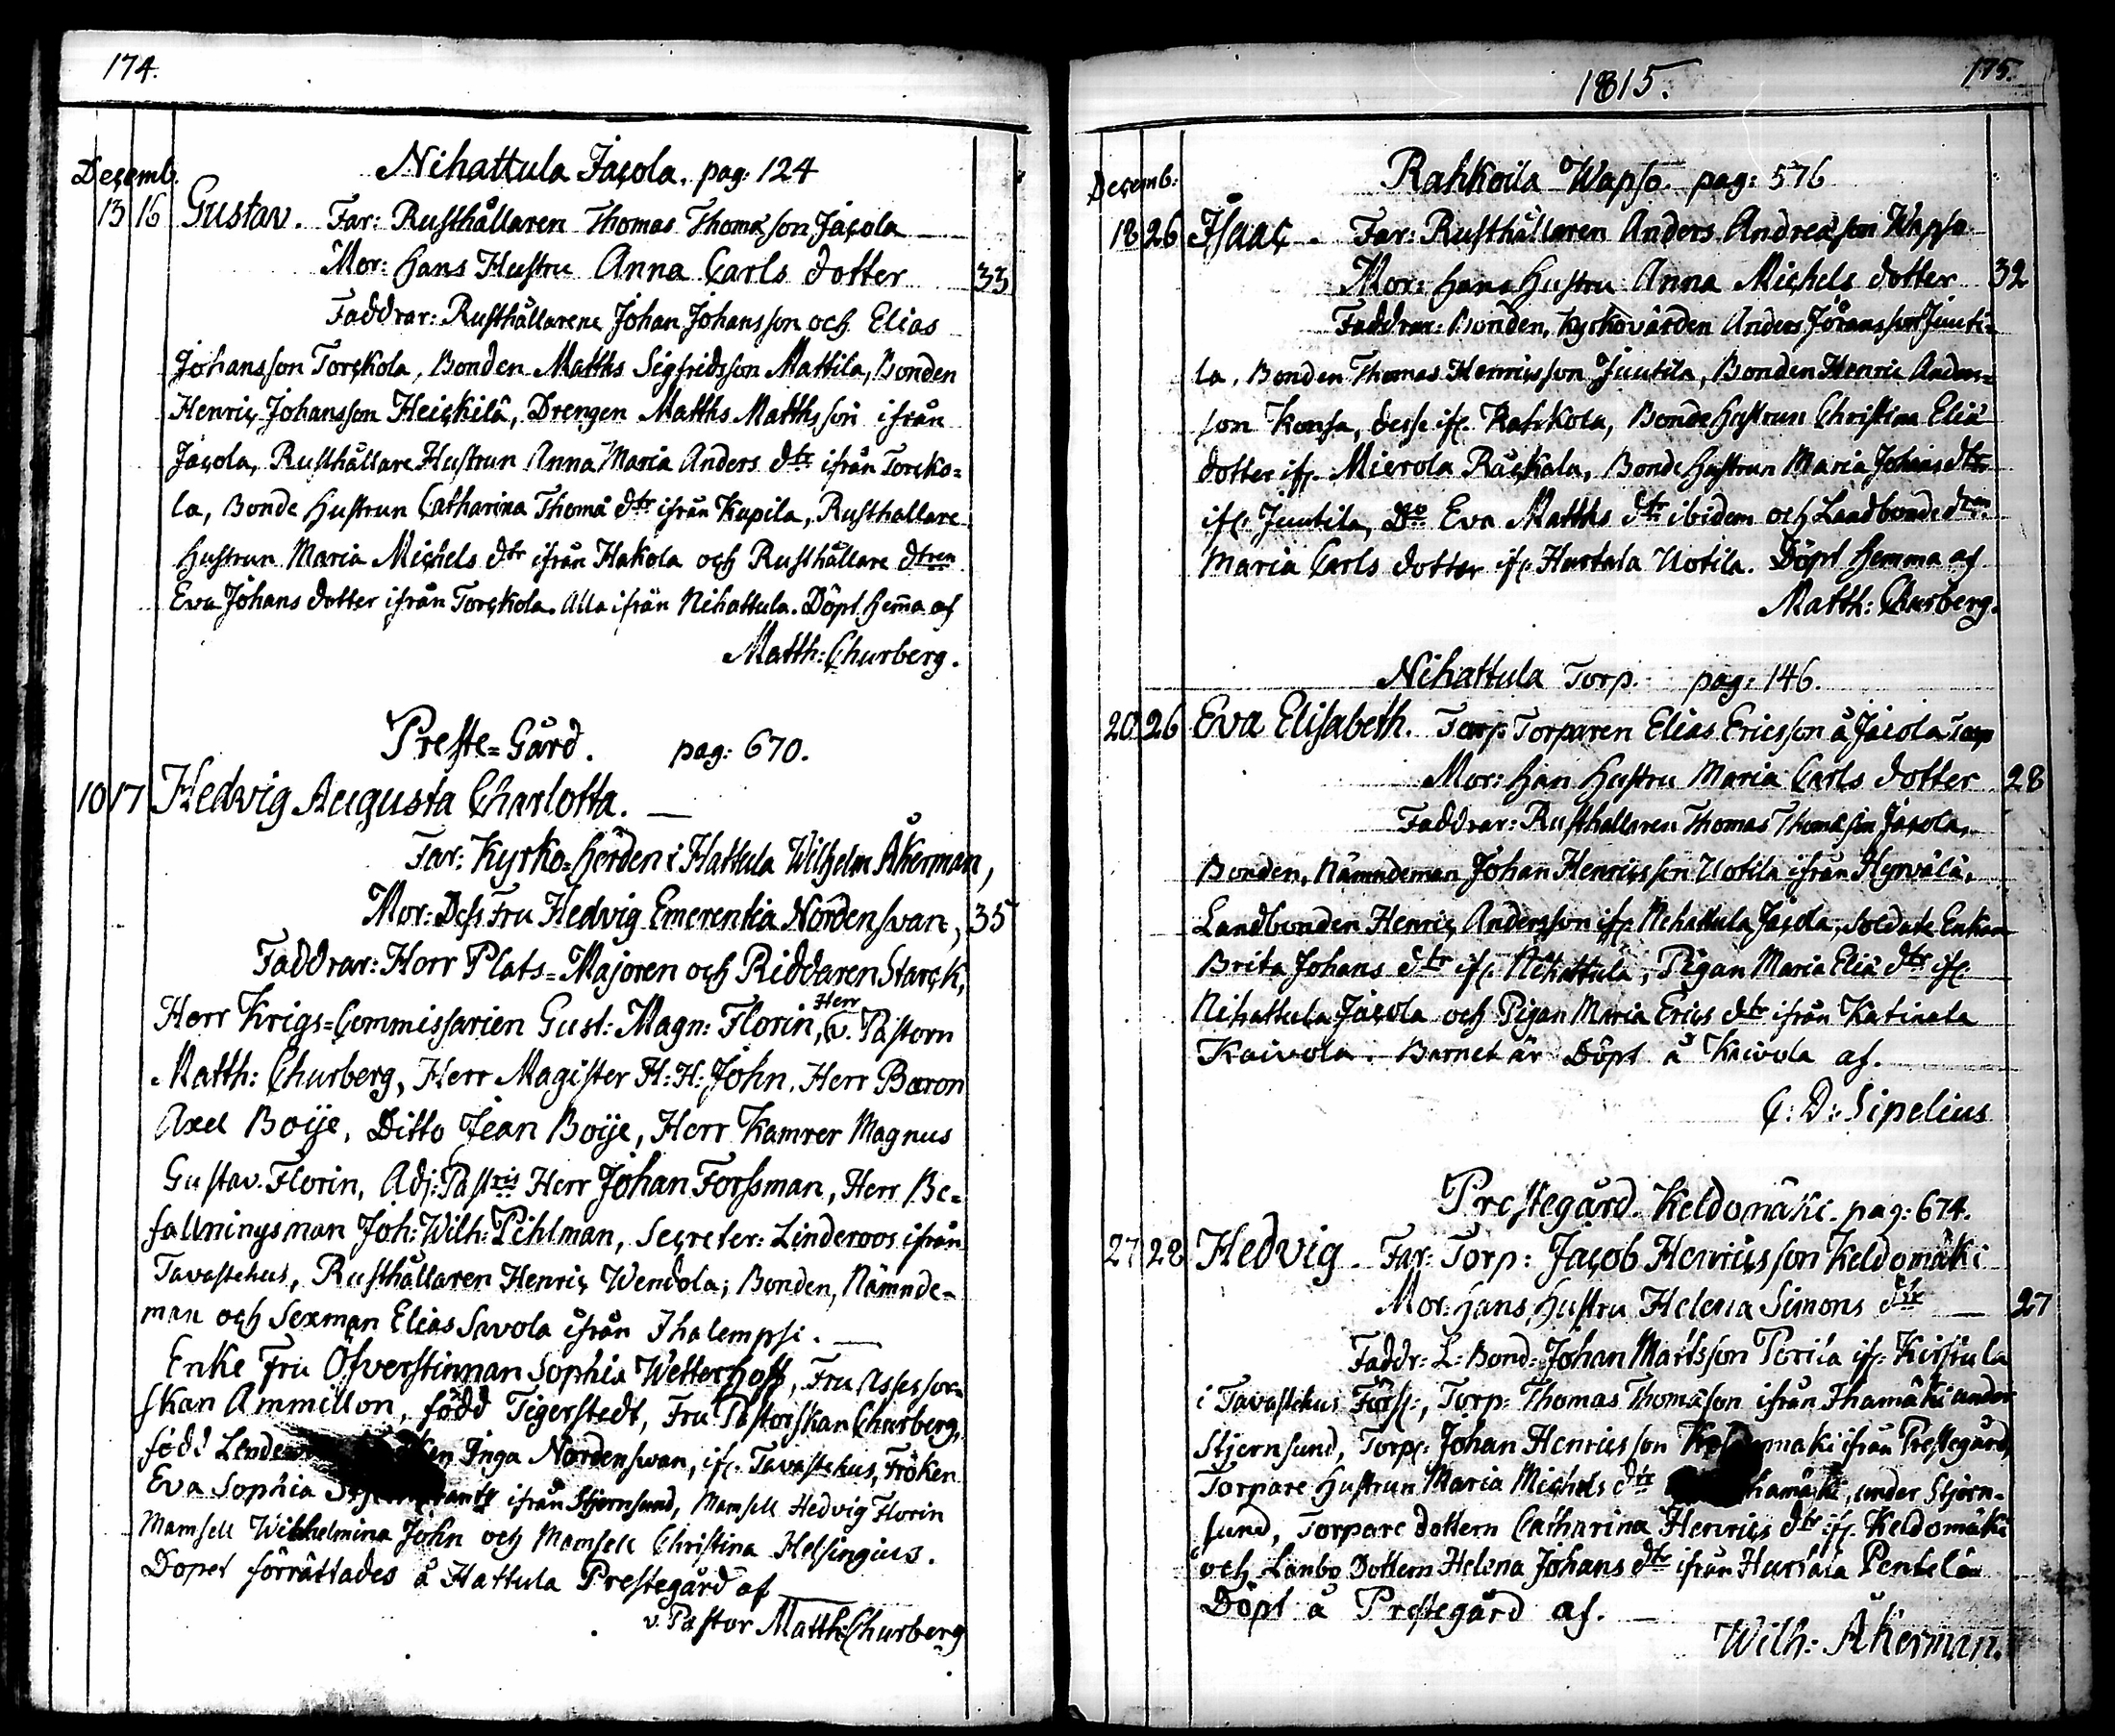 174.
Decemb.
Nihattula Jacola. pag: 124
13 16 Gustav. Far: Rusthållaren Thomas Thomasson Jacola
Mor: Hans Hustru Anna Carls dotter 33
Faddrar: Rusthållarene Johan Johansson och Elias
Johansson Torckola, Bonden Matths Sigfridsson Mattila, Bonden
Henric Johansson Heickilä, Drengen Matths Matthsson ifrån
Jacola, Rusthållare Hustrun Anna Maria Anders dtr ifrån Torcko=
la, Bonde Hustrun Catharina Thomä dtr ifrån Kupila, Rusthallare
Hustrun Maria Michels dtr ifrån Hakola och Rusthållare dtren
Eva Johans dotter ifrån Torckola. Alla ifrån Nihattula. Döpt hem̄a af
Matth: Churberg.
Preste=Gård. pag: 670.
10 17 Hedvig Augusta Charlotta.
Far: Kyrko=Herden i Hattula Wilhelm Åkerman,
Mor: Dess Fru Hedvig Emerentia Nordenswan, 35
Faddrar: Herr Plats=Majoren och Riddaren Starck,
Herr Krigs=Commissarien Gust: Magn: Florin, Herr v. Pastorn
Matth: Churberg, Herr Magister H: H: John, Herr Baron
Axel Boije, Ditto Jean Boije, Herr Kamrer Magnus
Gustav Florin, Adj: Pastris Herr Johan Forssman, Herr Be=
fallningsman Joh: Wilh: Pihlman, Secreter: Linderoos ifrån
Tavastehus, Rusthållaren Henric Wendola; Bonden, Nämnde=
man och Sexman Elias Savola ifrån Ihalempsi.
Enke Fru Öfverstinnan Sophia Wetterhoff, Fru Assessor=
skan Ammillon, född Tigerstedt, Fru Pastorskan Churberg,
född Inga Nordenswan, ifr. Tavastehus, Fröken
Eva Sophia ifrån Stjernsund, Mamsell Hedvig Florin
Mamsell Wilhelmina John och Mamsell Christina Helsingius.
Dopet förrättades å Hattula Prestegård af
v. Pastor Matth: Churberg
1815. 175.
Decemb:
Rahkoila Wapso. pag: 576
18 26 Isaac. Far: Rusthållaren Anders Andreasson Wapso
Mor: Hans Hustru Anna Michels dotter 32
Faddrar: Bonden, Kyrkovärden Anders Jöransson Juuti=
la, Bonden Thomas Henricsson Juutila, Bonden Henric Anders=
son Konsa, desse ifr. Rahkola, Bonde Hustrun Christina Eliä
dotter ifr. Mierola Räckola, Bonde Hustrun Maria Johans dtr
ifr. Juutila, Do Eva Matths dtr ibidem och Landbonde dtren
Maria Carls dotter ifr. Hurtala Uotila. Döpt hemma af
Matth: Churberg.
Nihattula Torp. pag: 146.
20 26 Eva Elisabeth. Far: Torparen Elias Ericsson å Jacola Torp
Mor: Han Hustru Maria Carls dotter 28
Faddrar: Rusthallaren Thomas Thomasson Jacola,
Bonden, Nämndeman Johan Henricsson Uotila ifrån Hyrvälä,
Landbonden Henric Andersson ifr. Nihattula Jacola, Soldate Enkan
Brita Johans dtr ifr. Nihattula, Pigan Maria Eliä dtr ifr.
Nihattula Jacola och Pigan Maria Erics dtr ifrån Katinala
Kaivola. Barnet är Döpt å Kaivola af.
C: D: Sipelius
Prestegård. Keldomäki. pag: 674.
27 28 Hedvig. Far: Torp: Jacob Henricsson Keldomäki
Mor: Hans Hustru Helena Simons dtr 27
Faddr: L: Bond: Johan Martsson ifr. Kirstula
i Tavastehus Förs:, Torp: Thomas Thomasson ifrån Ihamäki under
Stjernsund, Torp: Johan Henricsson ifrån Prestegård,
Torpare Hustrun Maria Michels dtr under Stjern=
sund, Torpare dottern Catharina Henrics dtr ifr. Keldomäki
och Lanbo Dottern Helena Johans dtr ifrån Hurtala Pentelä
Döpt å Prestegård af.
Wilh: Åkerman.